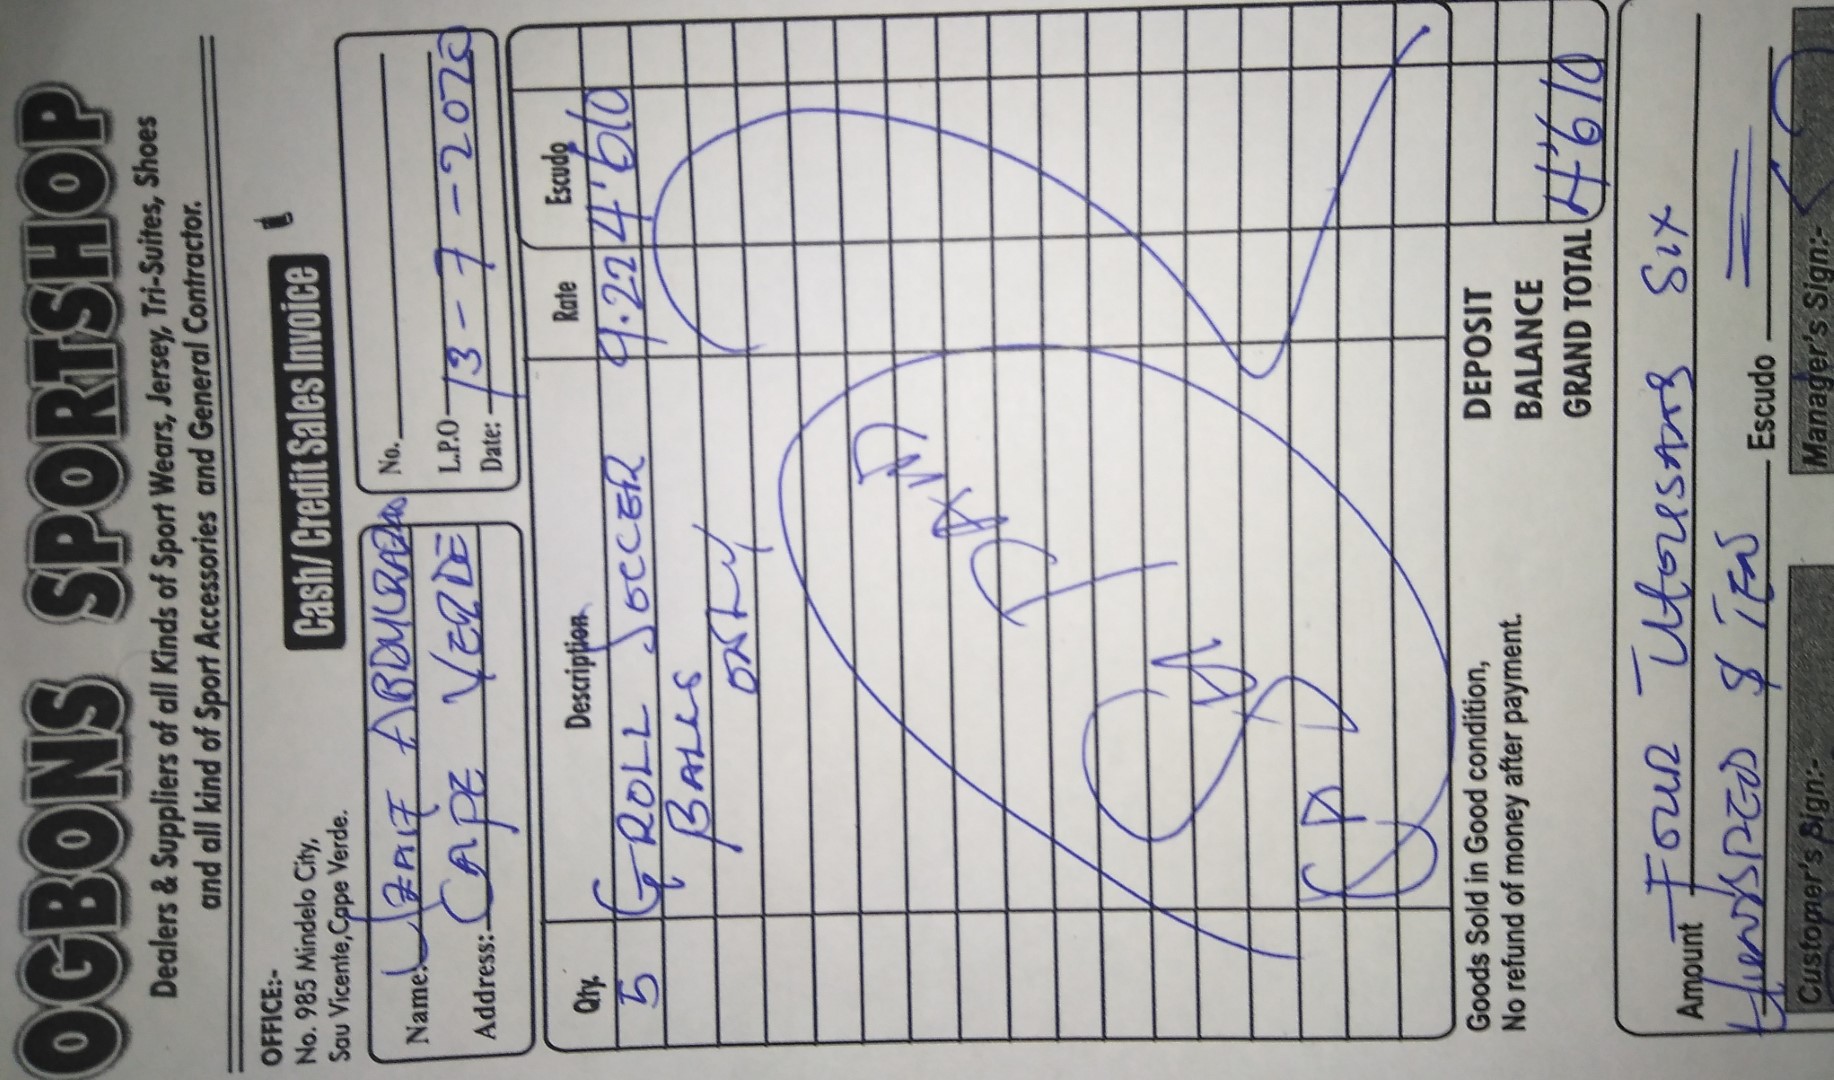 OGBONS SPORTSHOP
Dealers & Suppliers of all Kinds of Sport Wears, Jersey, Tri-Suites, Shoes
and all kind of Sport Accessories and General Contractor.
OFFICE:-
No. 985 Mindelo City,
Sau Vicente, Cape Verde.
Cash/ Credit Sales Invoice
Name:
Address: CAPE VERDE
No.
L.P.O
Date: 13-7-2020
Qty. Description Rate Escudo
5 GROLL SOCCER 9.22 4'610
BALLS
ONLY
PAID
Goods Sold in Good condition,
No refund of money after payment.
DEPOSIT
BALANCE
GRAND TOTAL 4'610
Amount FOUR THOUSAND SIX
HUNDRED & TEN Escudo
Customer's Sign:- Manager's Sign:-